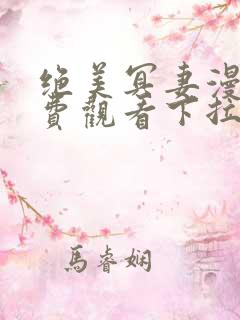 绝美冥妻漫
费觀看下拉
馬睿娴